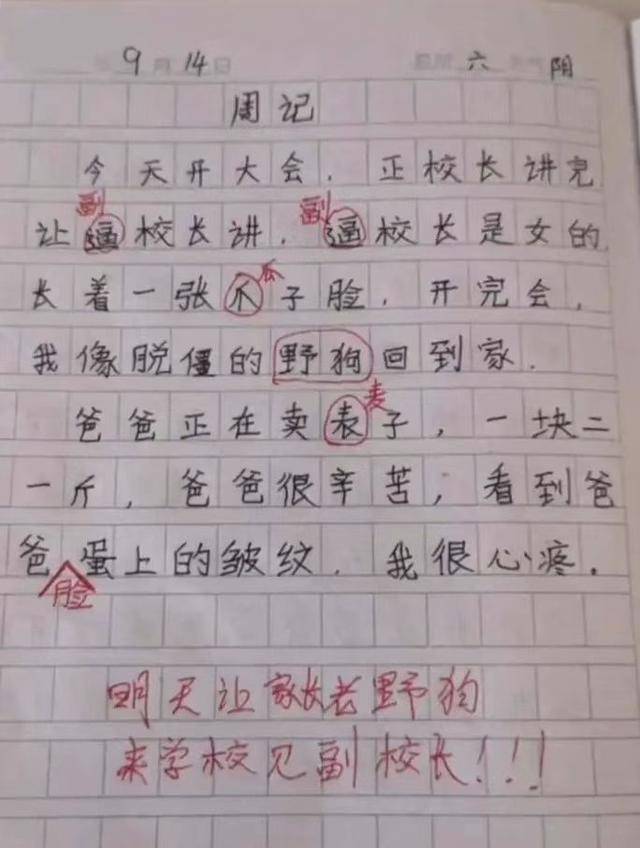 9月14日 星期六 天气阴
周记
今天开大会，正校长讲完
副 副
让逼校长讲，逼校长是女的
瓜
长着一张爪子脸，开完会，
我像脱僵的野狗回到家.
麦
爸爸正在卖表子，一块二
一斤，爸爸很辛苦，看到爸
爸蛋上的皱纹，我很心疼.
脸
明天让家长老野狗
来学校见副校长!!!